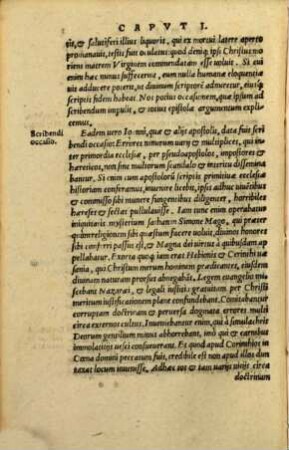 CAPVT I.
tis, & salutiferi illius liquoris, qui ex mortui latere aperto
promanauit, testis fuit oculatus: quod deniq; ipsi Christus mo
riens matrem Virginem commendatam esse uoluit. Si cui
enim hæc minus suffecerint, eum nulla humanæ eloquentiæ
uis adducere poterit, ut diuinum scriptorem admiretur, eiusq́;
scriptis fidem habeat. Nos potius occasionem, quæ ipsum ad
scribendum impulit, & huius epistolæ argumentum expli
cemus.
Scribendi
occasio.
Eadem uero Ioanni, quæ & alijs apostolis, data fuit scri
bendi occasio. Errores nimirum uarij & multiplices, qui in
ter primordia ecclesiæ, per pseudoapostolos, impostores, &
hæreticos, non sine multorum scandalo & interitu dissemina
bantur. Si enim cum apostolicis scriptis primitiuæ ecclesiæ
historiam conferamus, inuenire licebit, ipsis adhuc uiuentibus
& commisso sibi munere fungentibus diligenter, horribiles
hæreses & sectas pullulauisse. Iam tunc enim operabatur
iniquitatis mysterium satanas in Simone Mago, qui præter
quàm religionem sibi quæstum facere uoluit, diuinos honores
sibi conferri passus est, & Magna dei uirtus à quibusdam ap
pellabatur. Exorta quoq; iam erat Hebionis & Cerinthi uæ
sania, qui Christum merum hominem prædicantes, eiusdem
diuinam naturam prorsus abnegabant. Legem euangelio mi
scebant Nazaræi, & legali iustitia gratuitam per Christi
meritum iustificationem planè confundebant. Comitabantur
corruptam doctrinam & peruersa dogmata errores multi
circa externos cultus. Inueniebantur enim, qui à simulachris
Deorum gentilium minus abhorrebant, imò qui & carnibus
immolatitijs uesci consueuerant. Et quod apud Corinthios in
Cœna domini peccatum fuit, credibile est non apud illos dun
taxat locum inuenisse. Adhæc uti & tam uarijs uitijs circa
doctrinam